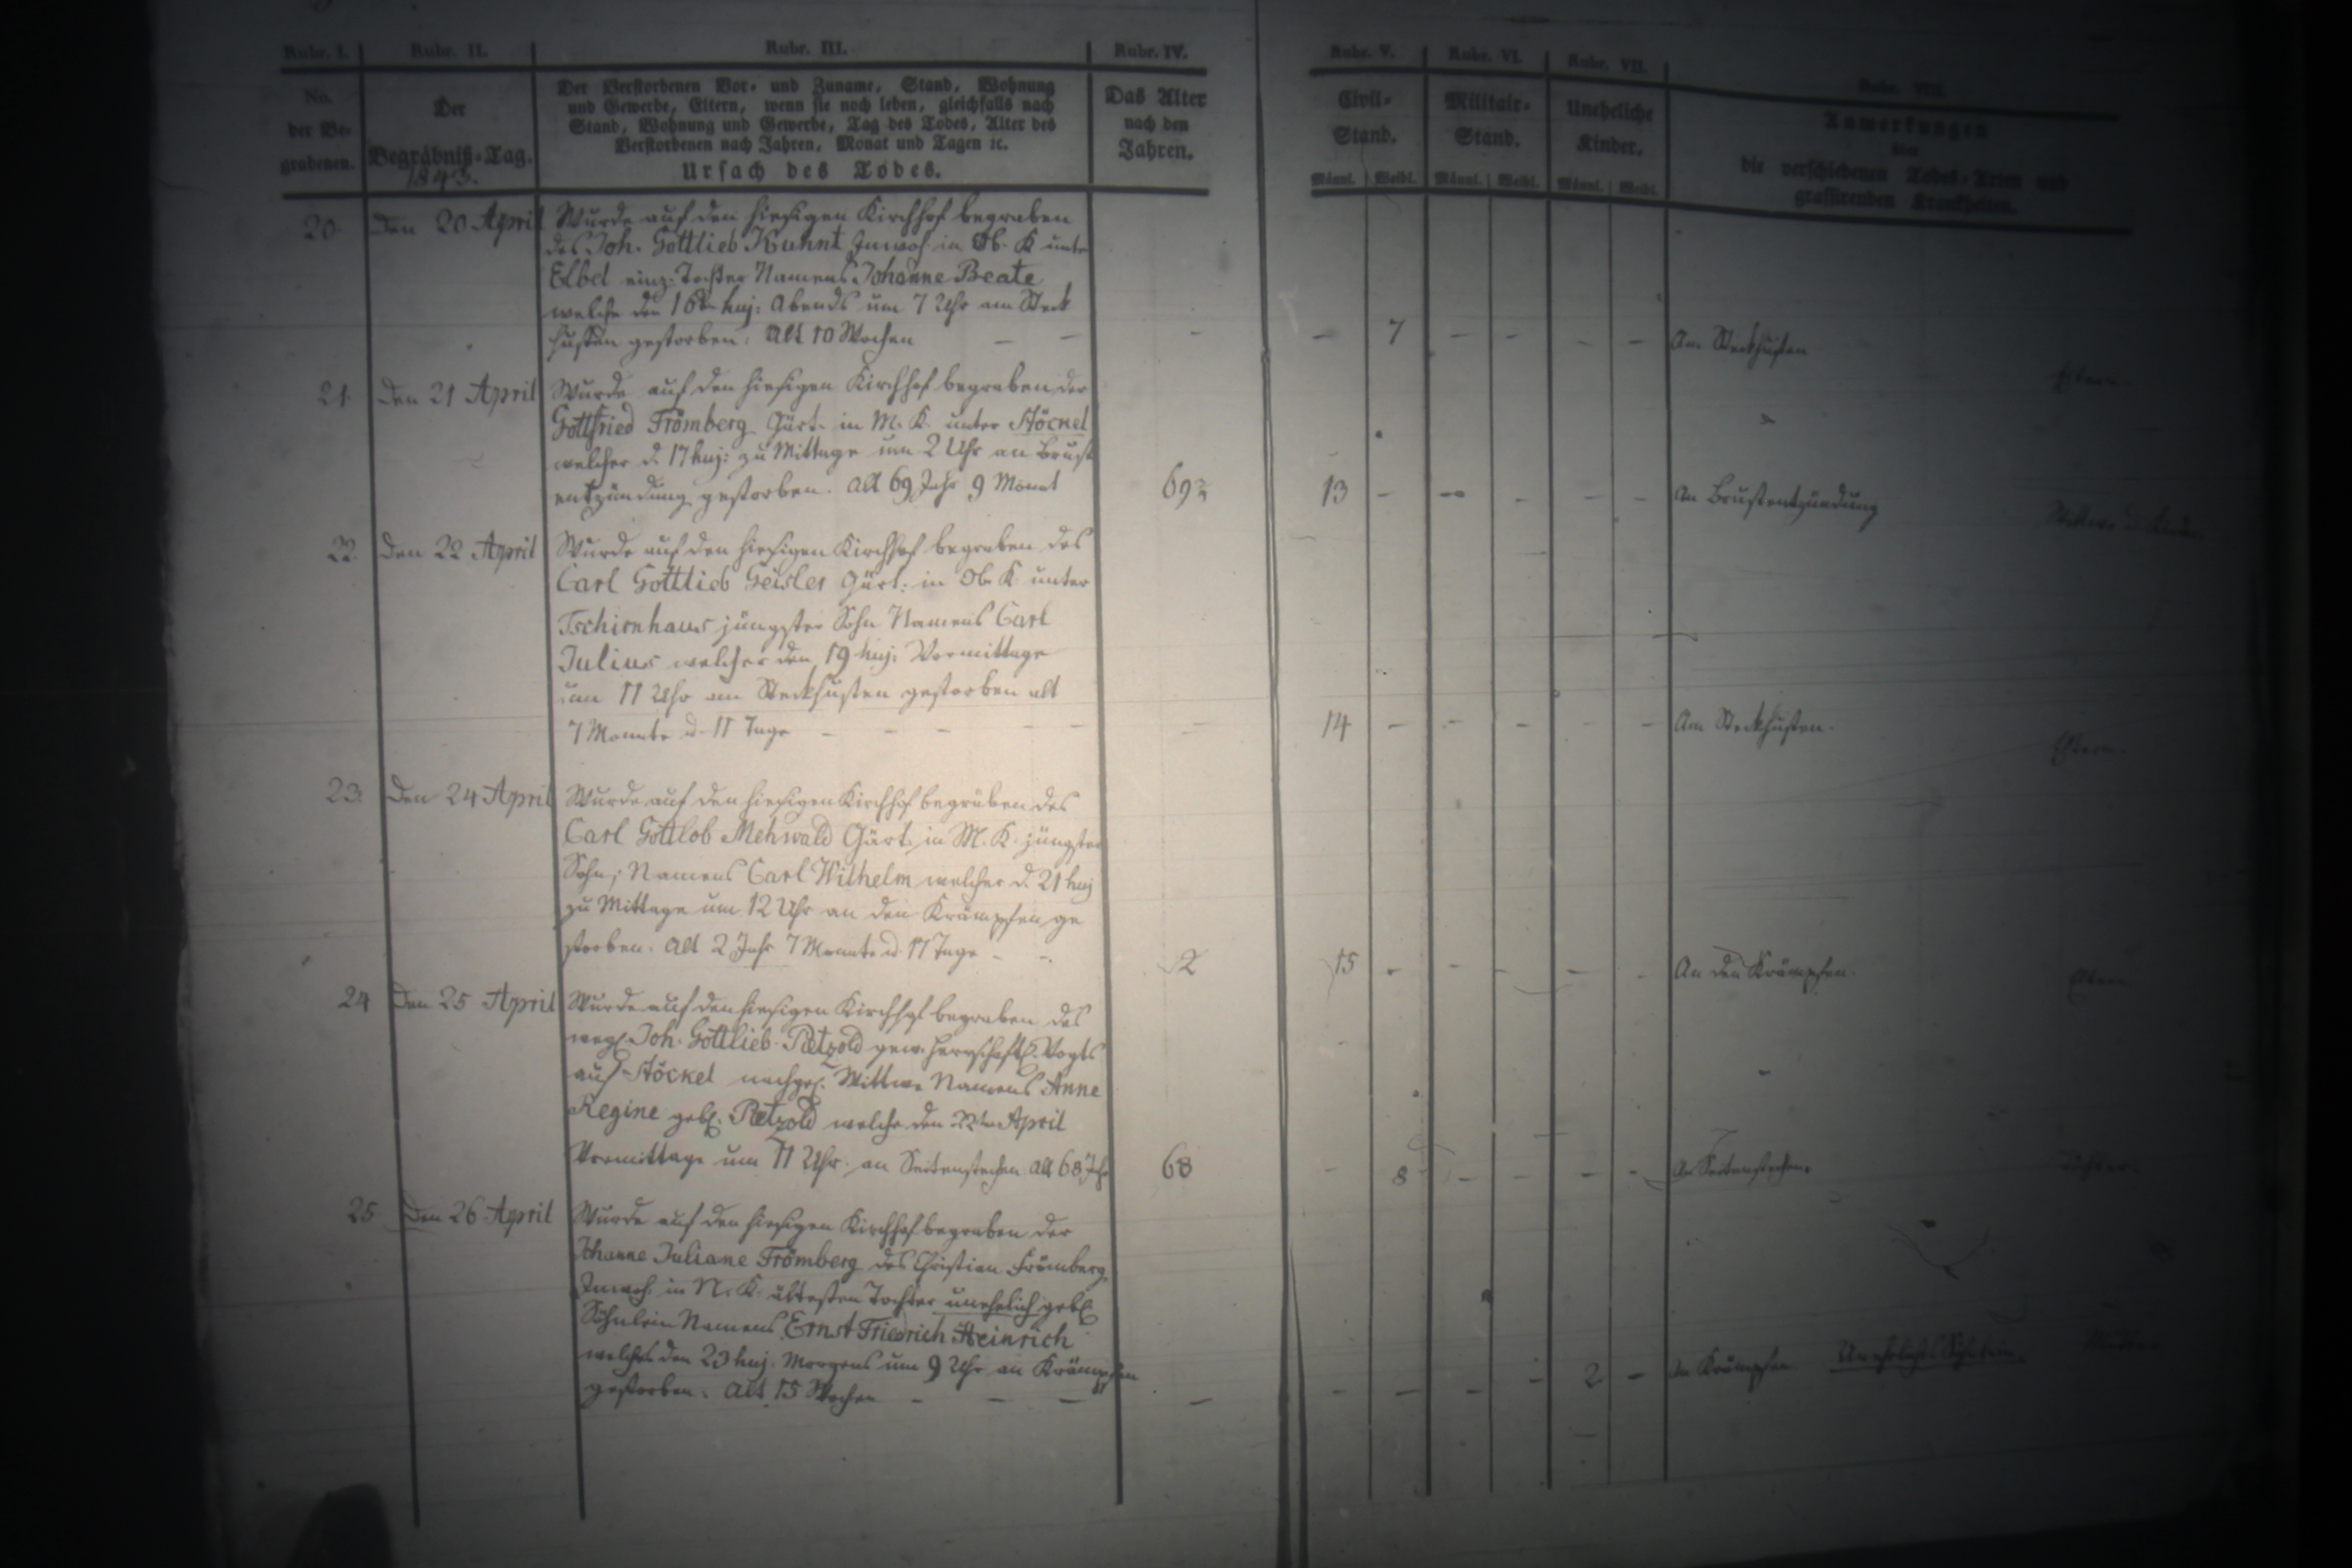 Rubr. I. Rubr. II. Rubr. III. Rubr. IV. Rubr. V. Rubr. VI. Rubr. VII. Rubr. VIII.
No. der Be- grabenen.
Der Begräbniß-Tag.
1843.
Der Verstorbenen Vor- und Zuname, Stand, Wohnung
und Gewerbe, Eltern, wenn sie noch leben, gleichfalls nach
Stand, Wohnung und Gewerbe, Tag des Todes, Alter des
Verstorbenen nach Jahren, Monat und Tagen ꝛc.
Ursach des Todes.
Das Alter
nach den
Jahren.
Civil-
Stand.
Männl. Weibl.
Militair-
Stand.
Männl. Weibl.
Uneheliche
Kinder.
Männl. Weibl.
Anmerkungen
die verschiedenen Todes-Arten und
grassirenden Krankheiten.
20. Den 20 April Wurde auf den hiesigen Kirchhof begraben
des Joh. Gottlieb Kuhnt Inwoh. in Ob. K unter
Elbel einz. Tochter Namens Johanne Beate
welche den 16 huj: Abends um 7 Uhr am Steck
husten gestorben: Alt 10 Wochen – – – – 7 – – – – Am Steckhusten
Eltern
21. Den 21 April Wurde auf den hiesigen Kirchhof begraben der
Gottfried Frömberg Gärt. in M. K. unter Stöckel
welcher d. 17 huj: zu Mittage um 2 Uhr an Brust
entzündung gestorben. Alt 69 Jahr 9 Monat 69 13 – – – – – An Brustentzündung
22. Den 22 April Wurde auf den hiesigen Kirchhof begraben des
Carl Gottlieb Geisler Gärt: in Ob. K. unter
Tschirnhaus jüngster Sohn Namens Carl
Julius welcher den 19 huj: Vormittage
um 11 Uhr am Steckhusten gestorben alt
7 Monate u. 11 Tage – – – – – – 14 – – – – – Am Steckhusten.
Eltern.
23. Den 24 April Wurde auf den hiesigen Kirchhof begraben des
Carl Gottlob Mehwald Gärt. in M. K. jüngster
Sohn, Namens Carl Wilhelm welcher d. 21 huj
zu Mittage um 12 Uhr an den Krämpfen ge
storben. Alt 2 Jahr 7 Monate u. 17 Tage – – 2 15 – – – – – An den Krämpfen.
Eltern
24 Den 25 April Wurde auf den hiesigen Kirchhof begraben des
Joh. Gottlieb Petzold gew. herrschaftl. Vogts
auf Stöckel nachgel. Wittwe Namens Anne
Regine geb. Petzold welche den 22ten April
Vormittage um 11 Uhr an Seitenstechen alt 68 Jahr 68 – 8 – – – – An Seitenstechen.
25 Den 26 April Wurde auf den hiesigen Kirchhof begraben der
Johanne Juliane Frömberg des Christian Frömberg
Inwoh. in N. K. ältesten Tochter unehelich geb.
Söhnlein Namens Ernst Friedrich Heinrich
welches den 23 huj. Morgens um 9 Uhr an Krämpfen
gestorben: Alt 15 Wochen – – – – – – – – 2 – An Krämpfen Uneheliches Söhnlein.